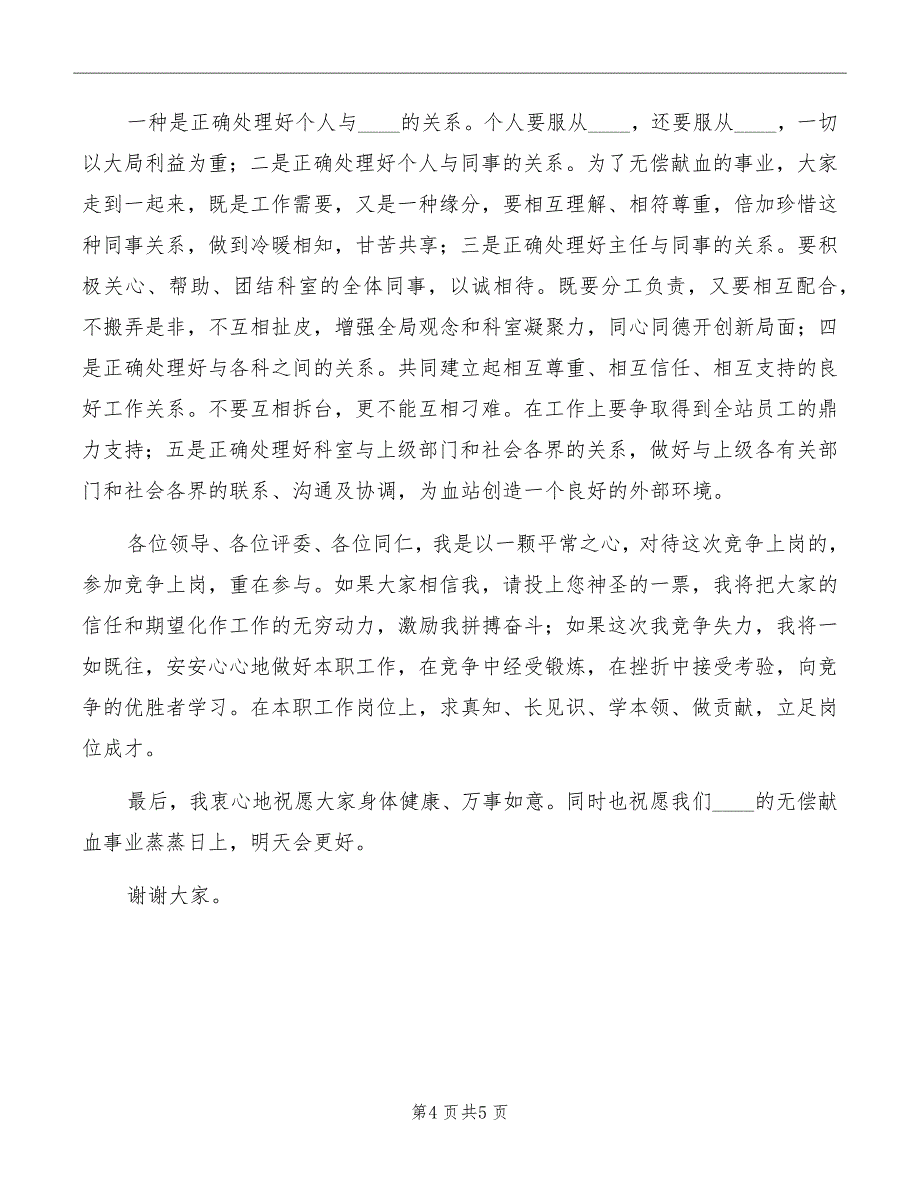 一种是正确处理好个人与____的关系。个人要服从____，还要服从____，一切
以大局利益为重；二是正确处理好个人与同事的关系。为了无偿献血的事业，大家
走到一起来，既是工作需要，又是一种缘分，要相互理解、相符尊重，倍加珍惜这
种同事关系，做到冷暖相知，甘苦共享；三是正确处理好主任与同事的关系。要积
极关心、帮助、团结科室的全体同事，以诚相待。既要分工负责，又要相互配合，
不搬弄是非，不互相扯皮，增强全局观念和科室凝聚力，同心同德开创新局面；四
是正确处理好与各科之间的关系。共同建立起相互尊重、相互信任、相互支持的良
好工作关系。不要互相拆台，更不能互相刁难。在工作上要争取得到全站员工的鼎
力支持；五是正确处理好科室与上级部门和社会各界的关系，做好与上级各有关部
门和社会各界的联系、沟通及协调，为血站创造一个良好的外部环境。
各位领导、各位评委、各位同仁，我是以一颗平常之心，对待这次竞争上岗的，
参加竞争上岗，重在参与。如果大家相信我，请投上您神圣的一票，我将把大家的
信任和期望化作工作的无穷动力，激励我拼搏奋斗；如果这次我竞争失力，我将一
如既往，安安心心地做好本职工作，在竞争中经受锻炼，在挫折中接受考验，向竞
争的优胜者学习。在本职工作岗位上，求真知、长见识、学本领、做贡献，立足岗
位成才。
最后，我衷心地祝愿大家身体健康、万事如意。同时也祝愿我们____的无偿献
血事业蒸蒸日上，明天会更好。
谢谢大家。
第4 页共5 页